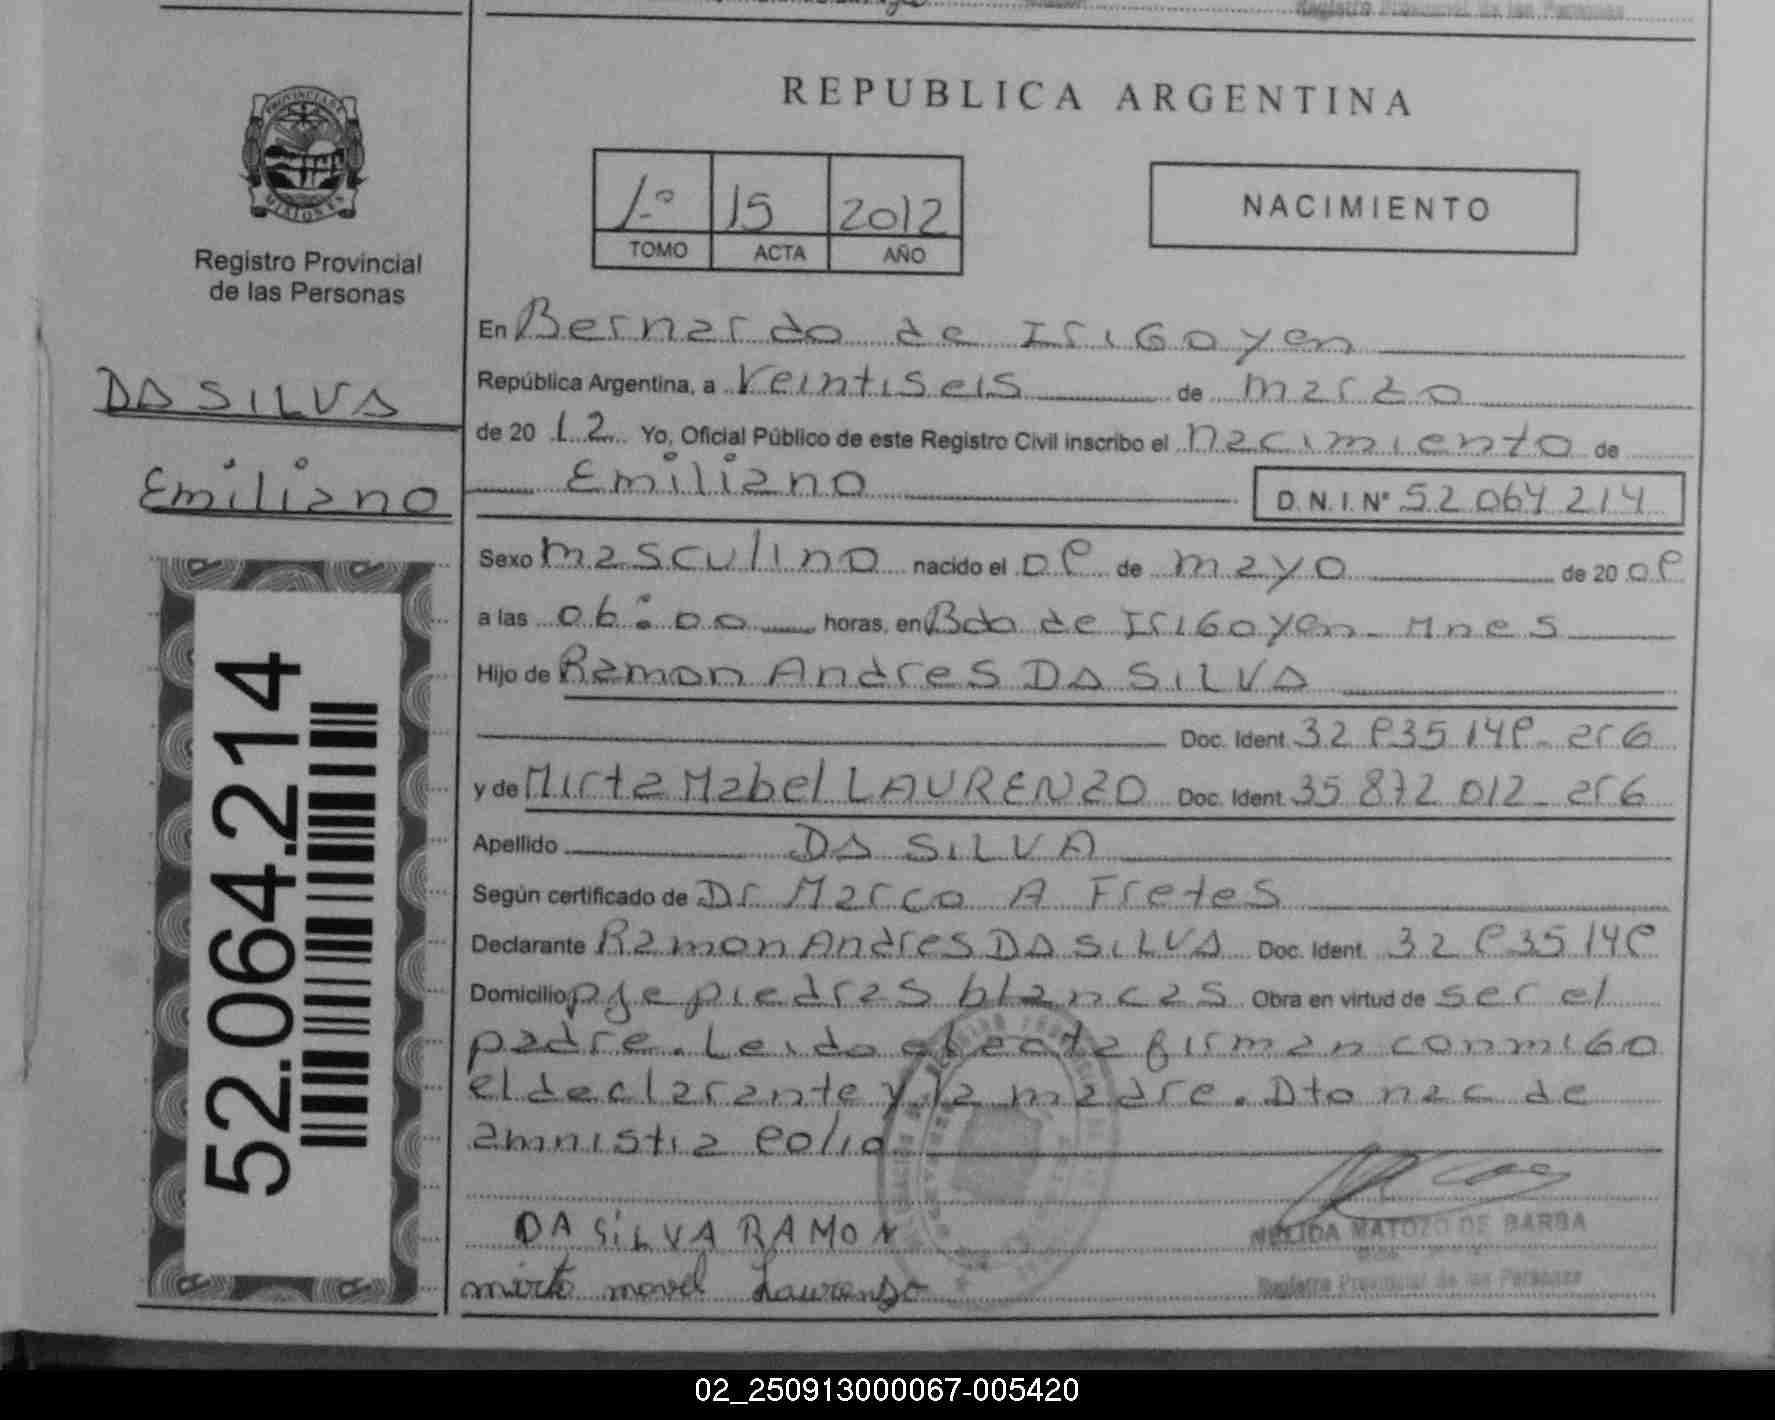 Registro Provincial de las Personas
REPUBLICA ARGENTINA
PROVINCIA DE
MISIONES
1º 15 2012
TOMO ACTA AÑO
NACIMIENTO
Registro Provincial
de las Personas
DA SILVA
Emiliano
52.064.214
En Bernardo de Irigoyen
República Argentina, a Veintiseis de marzo
de 20 12 Yo, Oficial Público de este Registro Civil inscribo el nacimiento de
Emiliano D. N. I. Nº 52 064 214
Sexo masculino nacido el 09 de mayo de 20 09
a las 06:00 horas, en Bdo de Irigoyen - Mnes
Hijo de Ramon Andres DA SILVA
Doc. Ident. 32 935 149 - arg
y de Mirta Mabel LAURENZO Doc. Ident. 35 872 012 - arg
Apellido DA SILVA
Según certificado de Dr Marco A Fretes
Declarante Ramon Andres DA SILVA Doc. Ident. 32 935 149
Domicilio pje piedras blancas Obra en virtud de ser el
padre. Leido el acta firman conmigo
el declarante y la madre. Dto nac de
amnistia 90/10
DA SILVA RAMON
NELIDA MATOZO DE BARBA
mirta mavel Laurenzo
Registro Provincial de las Personas
02_250913000067-005420